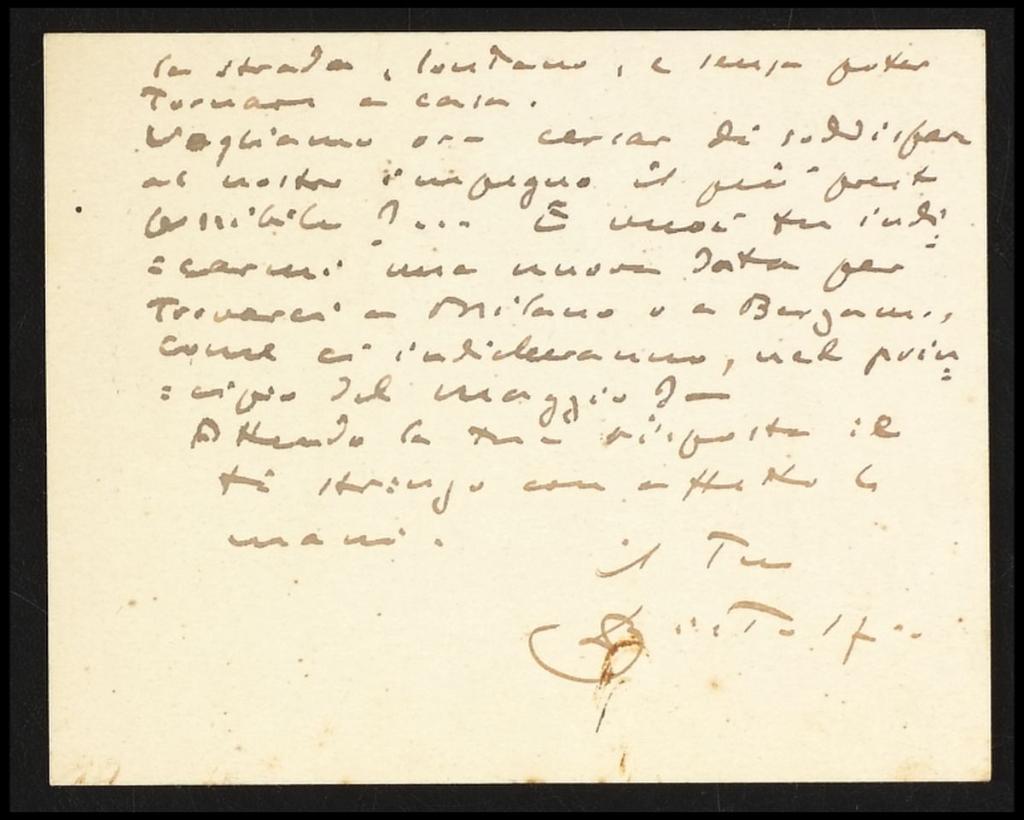 la strada, lontano, e senza poter
tornare a casa.
Vogliamo ora cercar di soddisfare
al nostro impegno il più presto
possibile?... E vuoi tu indi=
=carmi una nuova data per
trovarci a Milano o a Bergamo,
come ci indicheranno, nel prin=
=cipio del maggio?—
Attendo la tua risposta e
ti stringo con affetto le
mani.
il Tuo